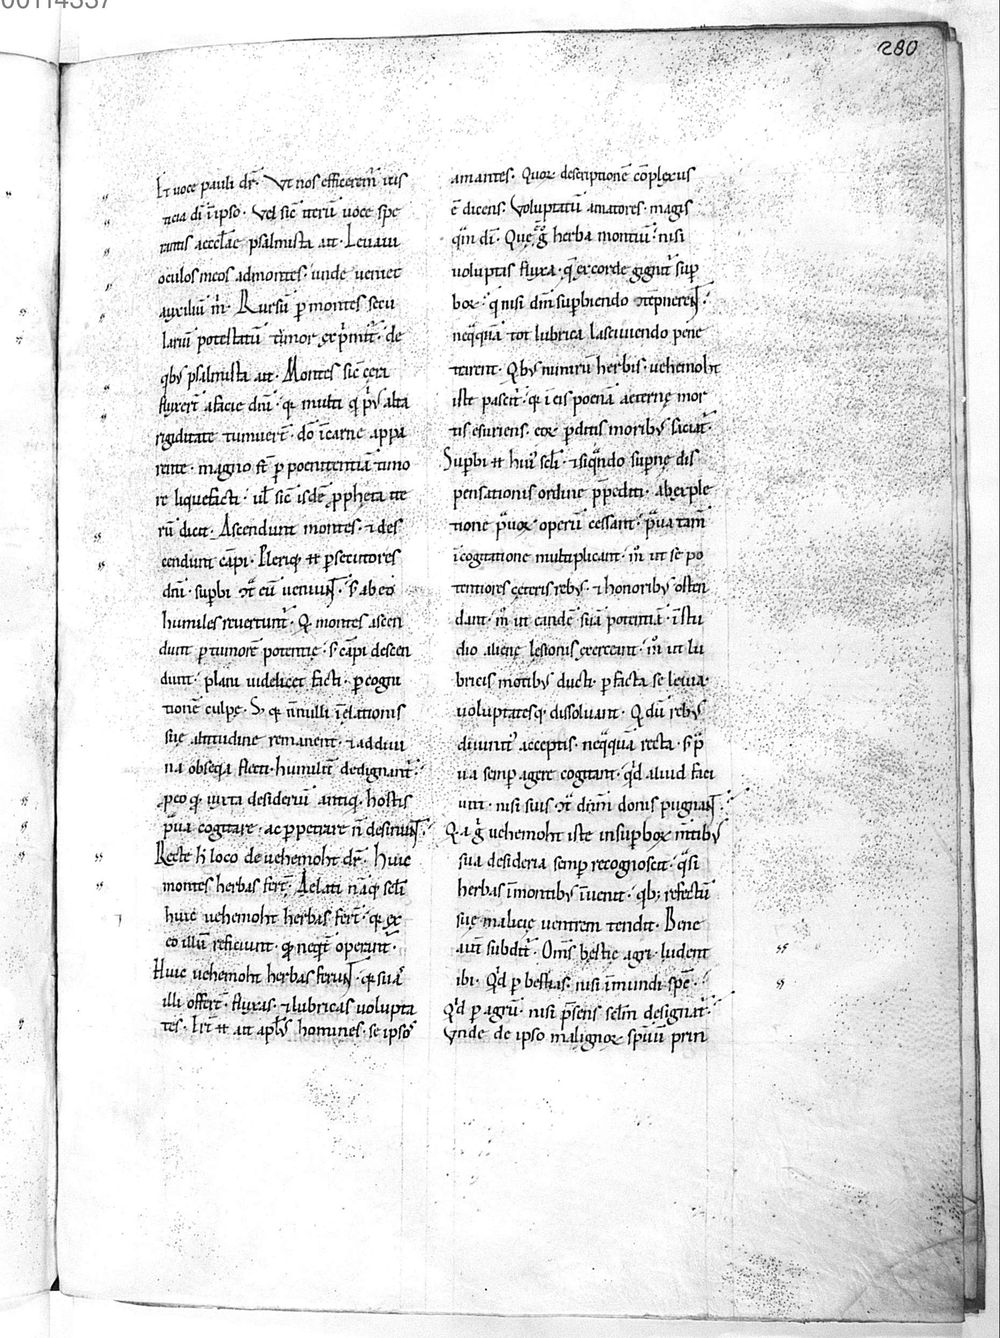 00114337
280
Et uoce pauli dr̄. Vt nos efficerem̄ ius
ticia dī ī ipso. Vel sic̄ iterū uoce spe
rantis accel̄ae psalmista ait. Leuaui
oculos meos admontes. unde ueniet
auxiliū m̄. Rursū ꝑ montes secu
lariū potestatū tumor exp̄mit̄. de
qbꝰ psalmista ait. Montes sic̄ cera
fluxer̄ afacie dn̄i. qꝛ multi q̄ pͥꝰ alta
rigiditate tumuer̄t. dō īcarne appa
rente. magno st̄ ꝑ poenitentiā timo
re liquefacti. ul̄ sic̄ isdē ꝓpheta ite
rū dicit. Ascendunt montes. ⁊ des
cendunt cāpi. Pleriq; .n. ꝑsecutores
dn̄i. supbi ꝯt̄ eū ueniun̄t. s; ab eo
humiles reuertunt̄. Qi montes ascen
dunt ꝑ tumorē potentię. s; cāpi descen
dunt. plani uidelicet facti. ꝑ cogni
tionē culpę. S; qꝛ n̄nulli īelationis
suę altitudine remanent. ⁊ addiui
na obseq̄a flecti. humilit̄ dedignant̄.
ꝑeo qd̄ iuxta desideriū antiq̄ hostis
pͣua cogitare. ac ꝑpetrare n̄ desinun̄t.
Recte h̄ loco de uehemoht dr̄. huic
montes herbas fer̄t. Aelati nāq; sc̄li
huic uehemoht herbas fer̄t. qꝛ ex
eo illū reficiunt. qd̄ neqt̄ operant̄.
Huic uehemoht herbas ferun̄t. qꝛ suas
illi offer̄t. fluxas. ⁊ lubricas uolupta
tes. Er̄t .n. ait apl̄s homines. se ipsos
amantes. Quoꝝ descriptionē cōplexus
ē dicens. Voluptatū amatores. magis
qͣm dī. Quę g̊ herba montiū. nisi
uoluptas fluxa. q̄ ex corde gignit̄ sup
boꝝ. q̄ nisi dn̄m supbiendo ꝯtepneren̄t.
neq̄quā tot lubrica lasciuiendo perpe
trarent. Qbꝰ nimirū herbis. uehemoht
iste pascit̄. qꝛ ī eis poenā aeternę mor
tis esuriens. eoꝝ ꝑditis moribꝰ saciat̄.
Supbi .n. huiꝰ sc̄li. ⁊ siqͣndo supnę dis
pensationis ordine p̄pediti. ab exple
tione pͣuoꝝ operū cessant. pͣua tam̄
ī cogitatione multiplicant. m̊ ut se po
tentiores ceteris rebꝰ. ⁊ honoribꝰ osten
dant. m̊ ut eandē suā potentiā. ī stu
dio alienę lesionis exerceant. m̊ ut lu
bricis motibꝰ ducti. ꝑ facta se leuia.
uoluptatesq; dissoluant. Qi dū rebꝰ
diuinitꝰ acceptis. neq̄quā recta. s; pͣ
ua semp agere cogitant. qd̄ aliud faci
unt. nisi suis ꝯt̄ dn̄m donis pugnan̄t.
Qa g̊ uehemoht iste in supboꝝ mn̄tibꝰ
sua desideria semp recognoscit. qͣsi
herbas īmontibꝰ īuenit. qb; refectū
suę malicię uentrem tendit. Bene
aut̄ subdit̄. Oms̄ bestię agri. ludent
ibi. Qd̄ ꝑ bestias. nisi īmundi spc̄.
Qd̄ ꝑ agrū. nisi p̄sens sc̄lm designat̄.
Vnde de ipso malignoꝝ spūū prin